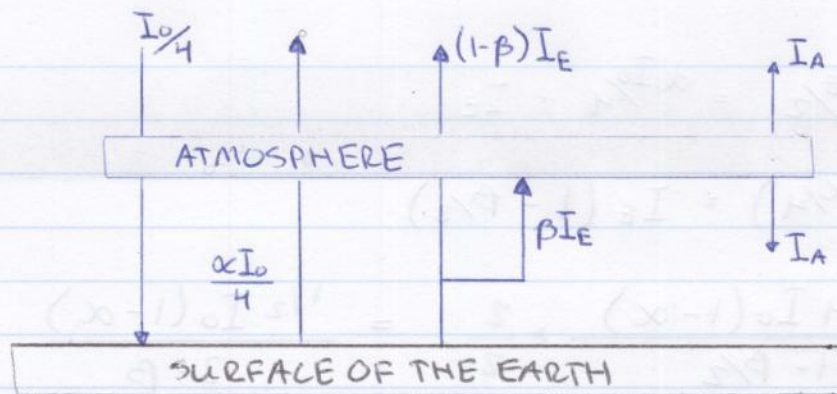 I₀/4
(1-β)I_E
I_A
ATMOSPHERE
βI_E
I_A
αI₀/4
SURFACE OF THE EARTH